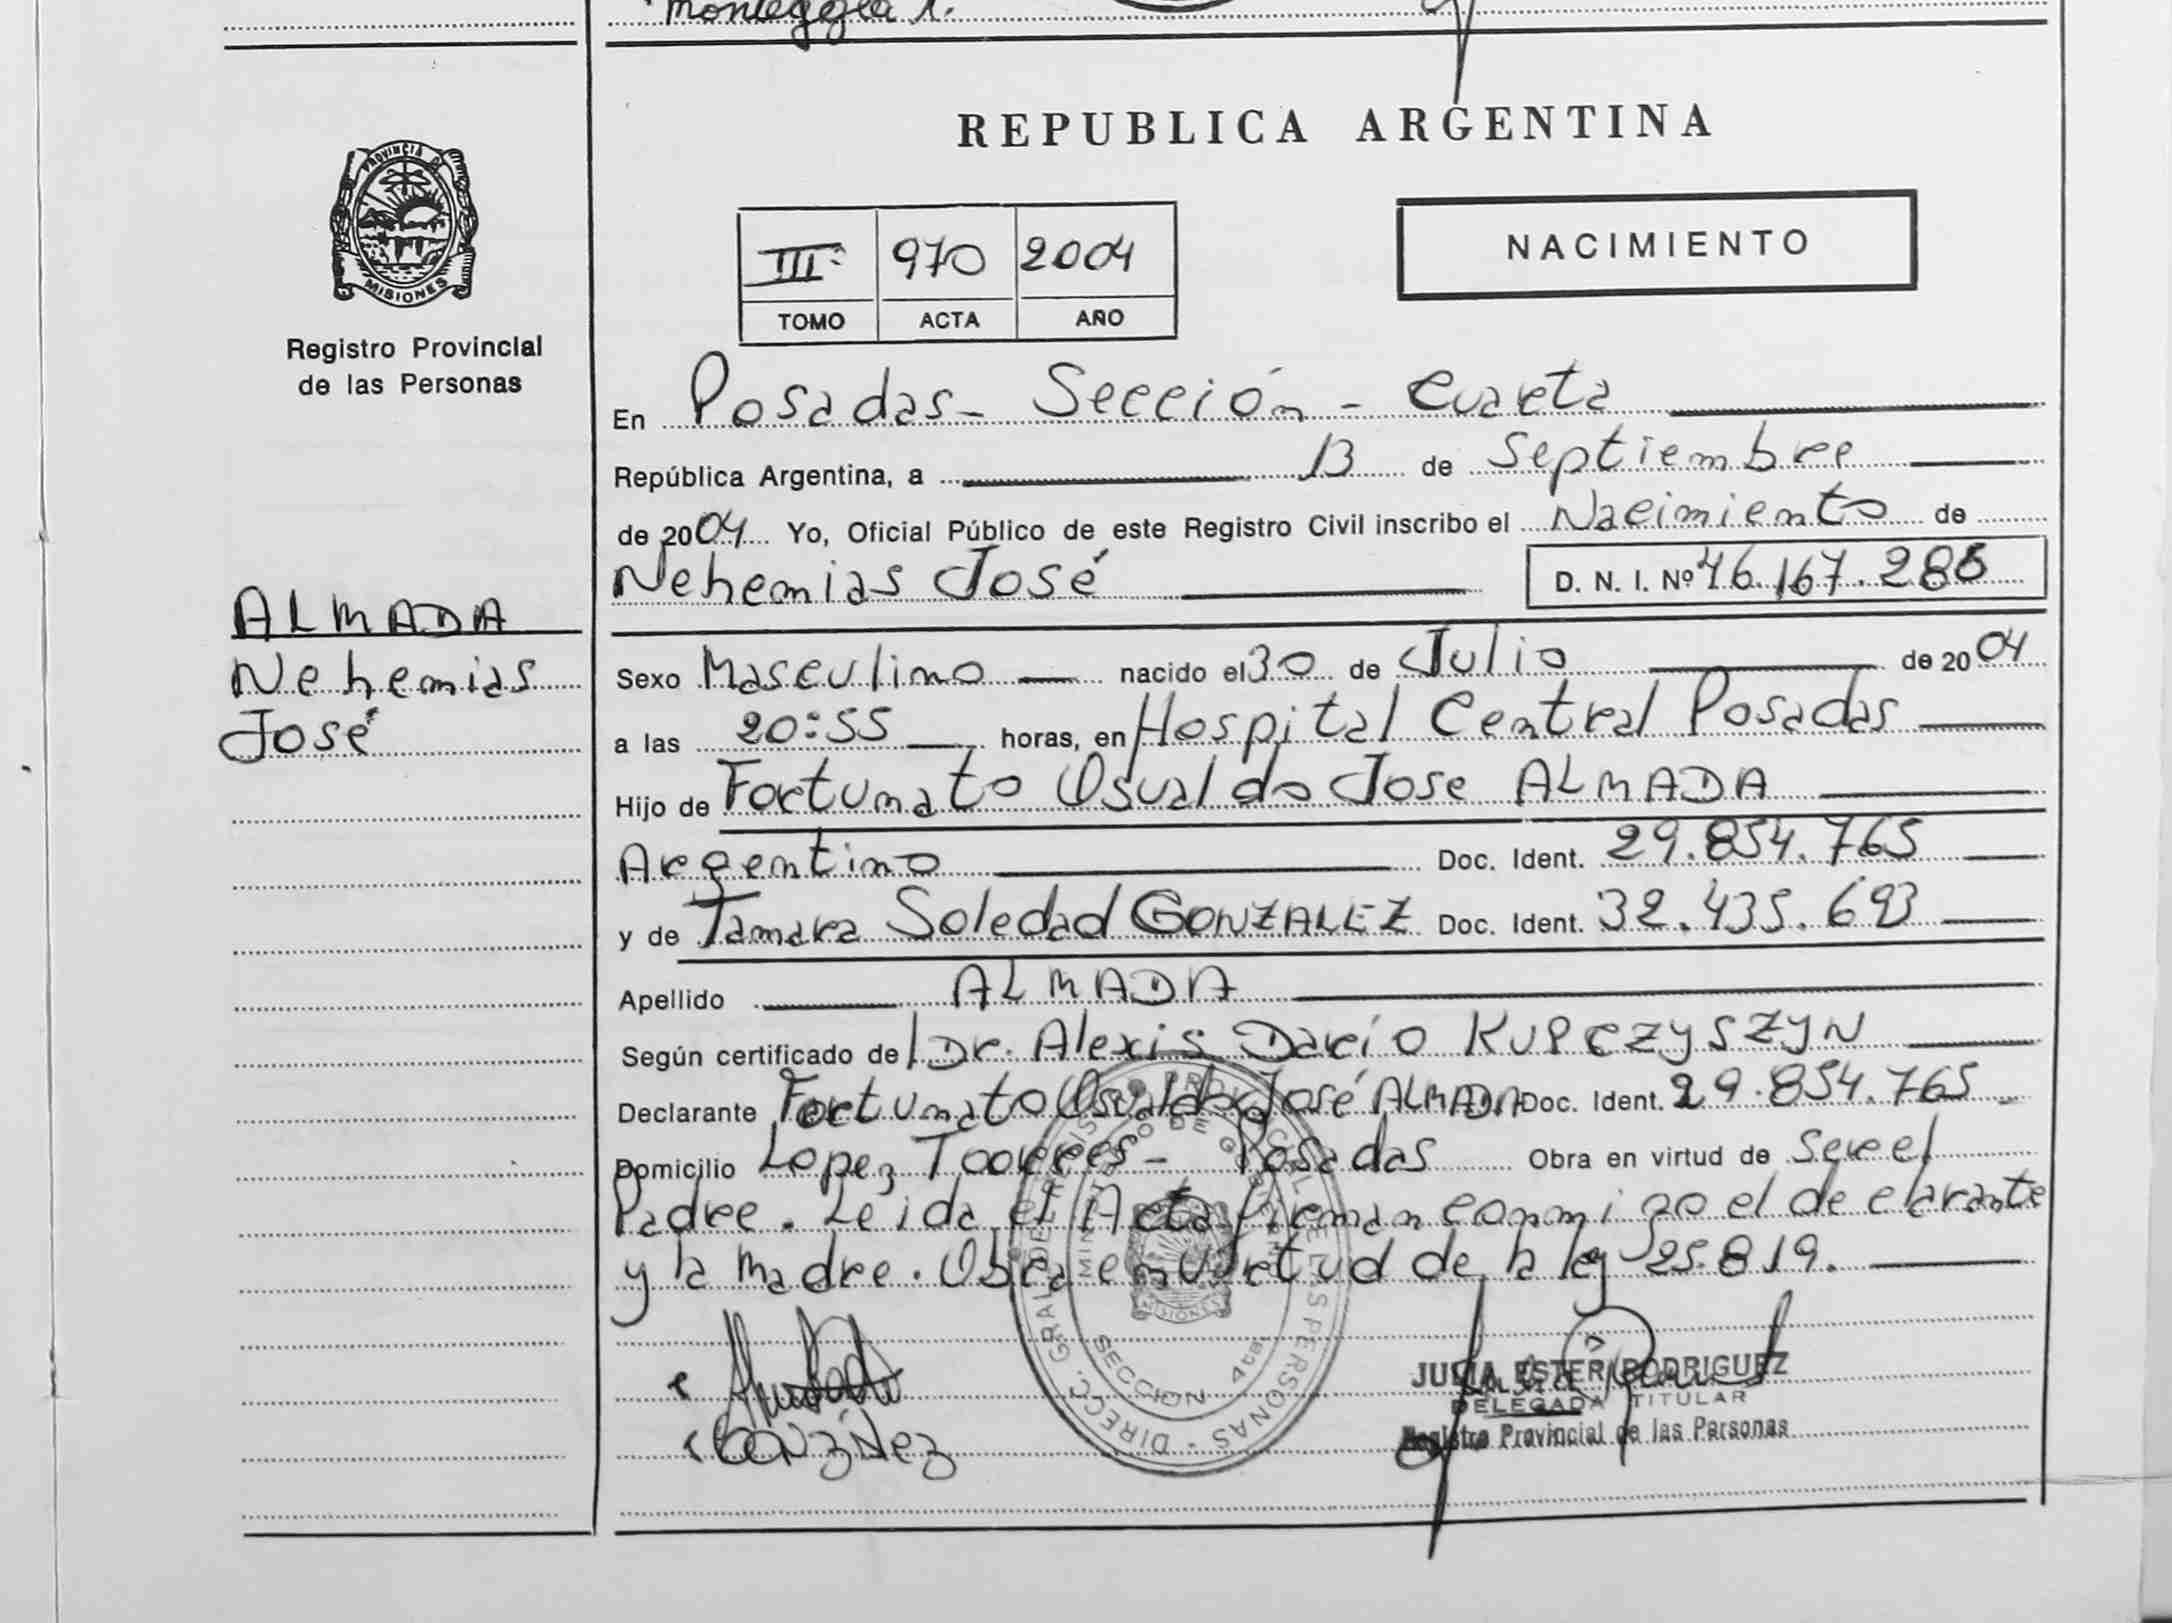 Monteggia
REPUBLICA ARGENTINA
PROVINCIA DE
MISIONES
Registro Provincial
de las Personas
III 970 2004
TOMO ACTA AÑO
NACIMIENTO
En Posadas - Sección - Cuarta
República Argentina, a 13 de Septiembre
de 2004 Yo, Oficial Público de este Registro Civil inscribo el Nacimiento de
Nehemias José D. N. I. Nº 46.167.286
ALMADA
Nehemias
José
Sexo Masculino nacido el 30 de Julio de 2004
a las 20:55 horas, en Hospital Central Posadas
Hijo de Fortunato Osvaldo Jose ALMADA
Argentino Doc. Ident. 29.854.765
y de Tamara Soledad GONZALEZ Doc. Ident. 32.435.693
Apellido ALMADA
Según certificado de Dr. Alexis Darío KUPCZYSZYN
Declarante Fortunato Osvaldo José ALMADA Doc. Ident. 29.854.765
Domicilio Lopez Toorres - Posadas Obra en virtud de Ser el
Padre. Leída el Acta firman conmigo el declarante
y la madre. Obra en virtud de la ley 25.819.
DIRECC. GRAL DEL REGISTRO PROVINCIAL DE LAS PERSONAS
MINISTERIO DE GOBIERNO
MISIONES
SECCION 4ta.
JULIA ESTER RODRIGUEZ
DELEGADA TITULAR
Registro Provincial de las Personas